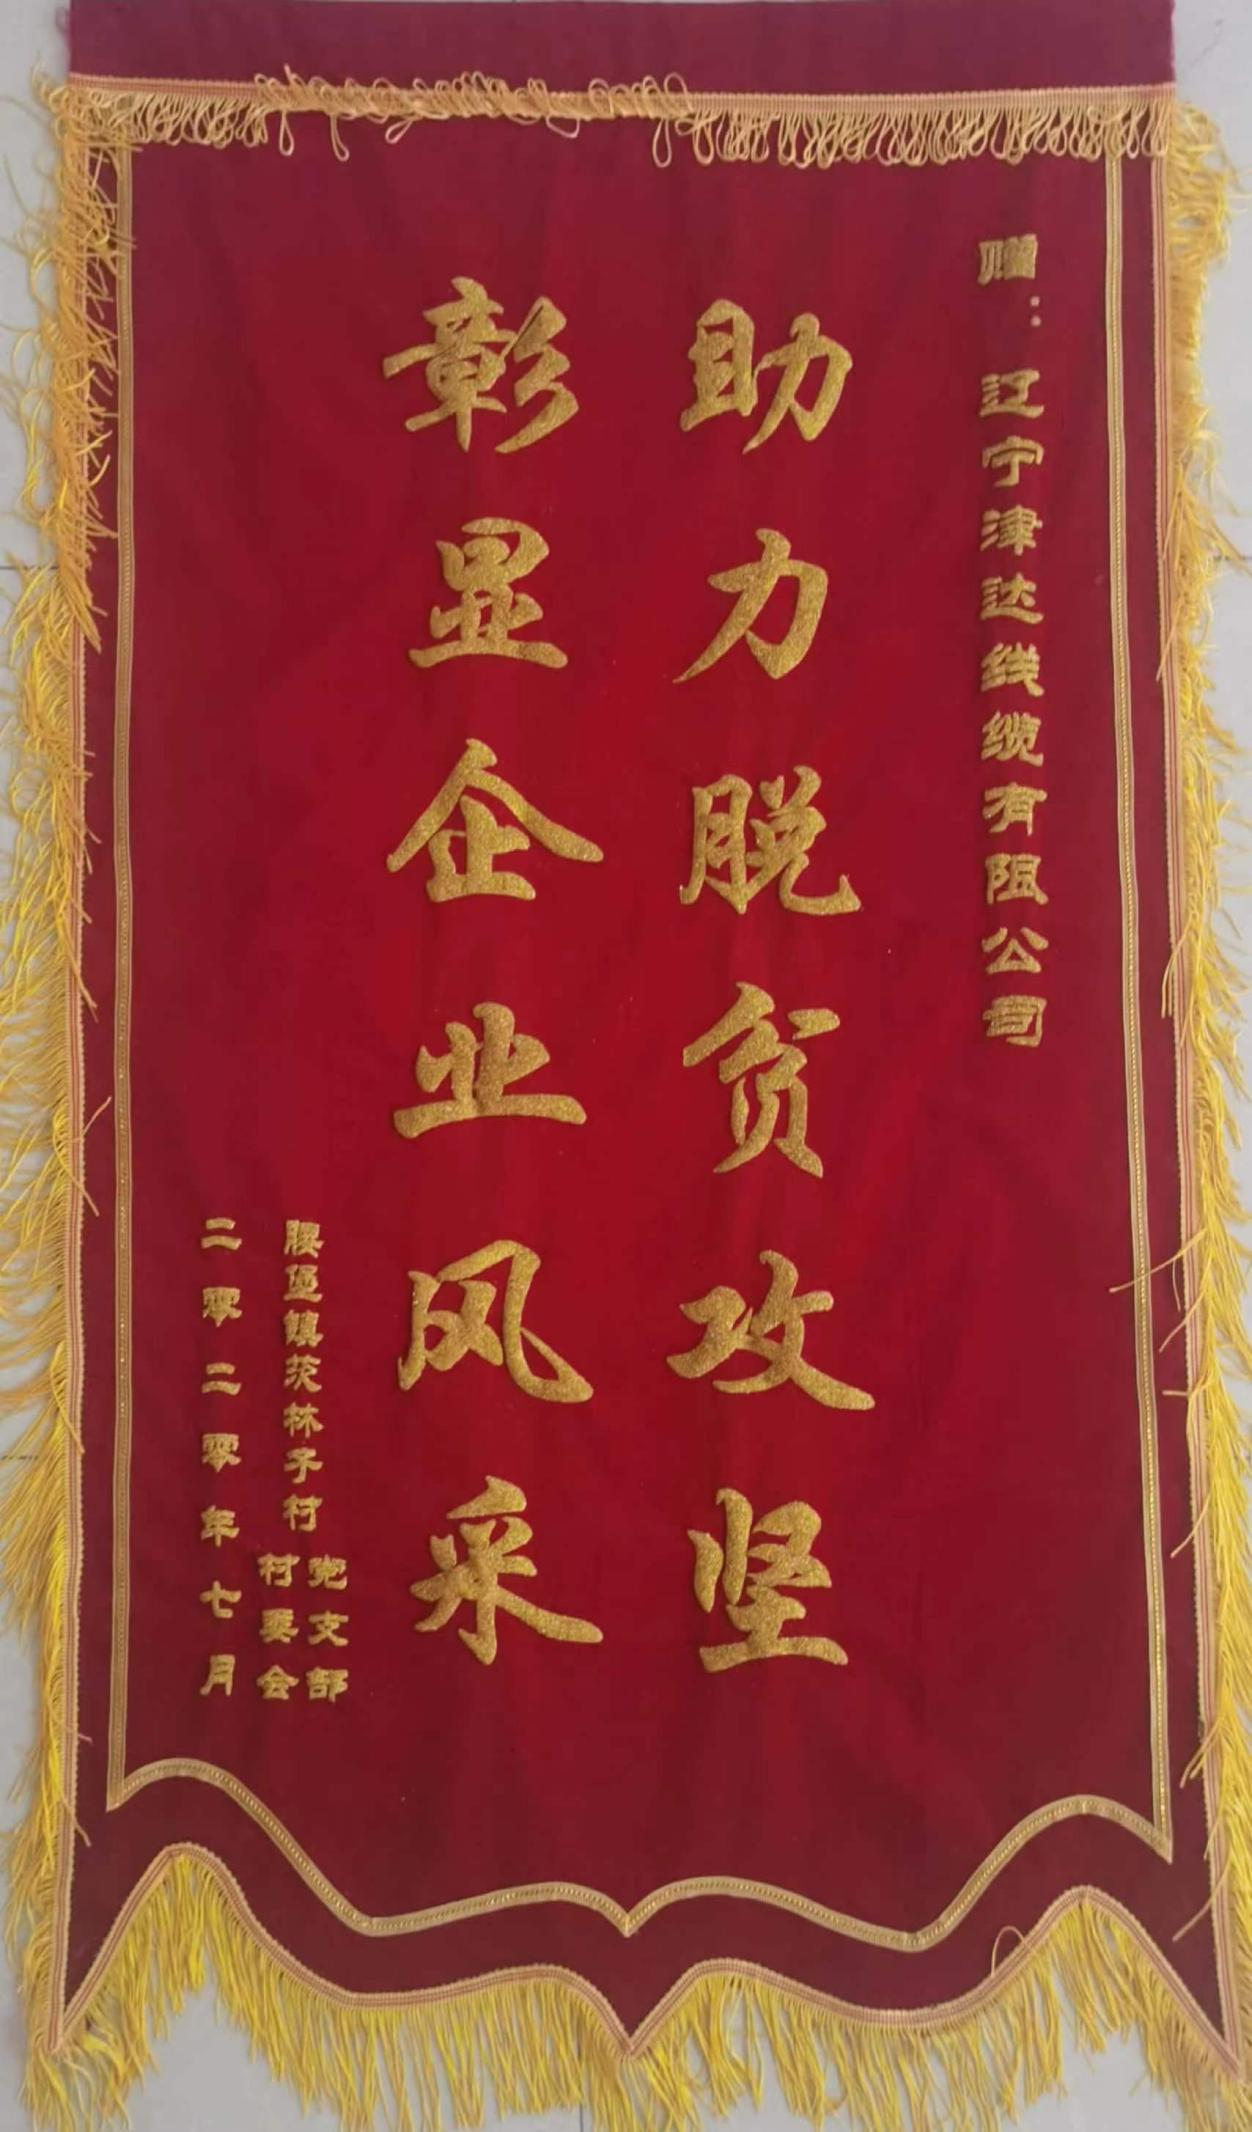 赠：辽宁津达线缆有限公司
助力脱贫攻坚
彰显企业风采
腰堡镇茨林子村
党支部
村委会
二零二零年七月